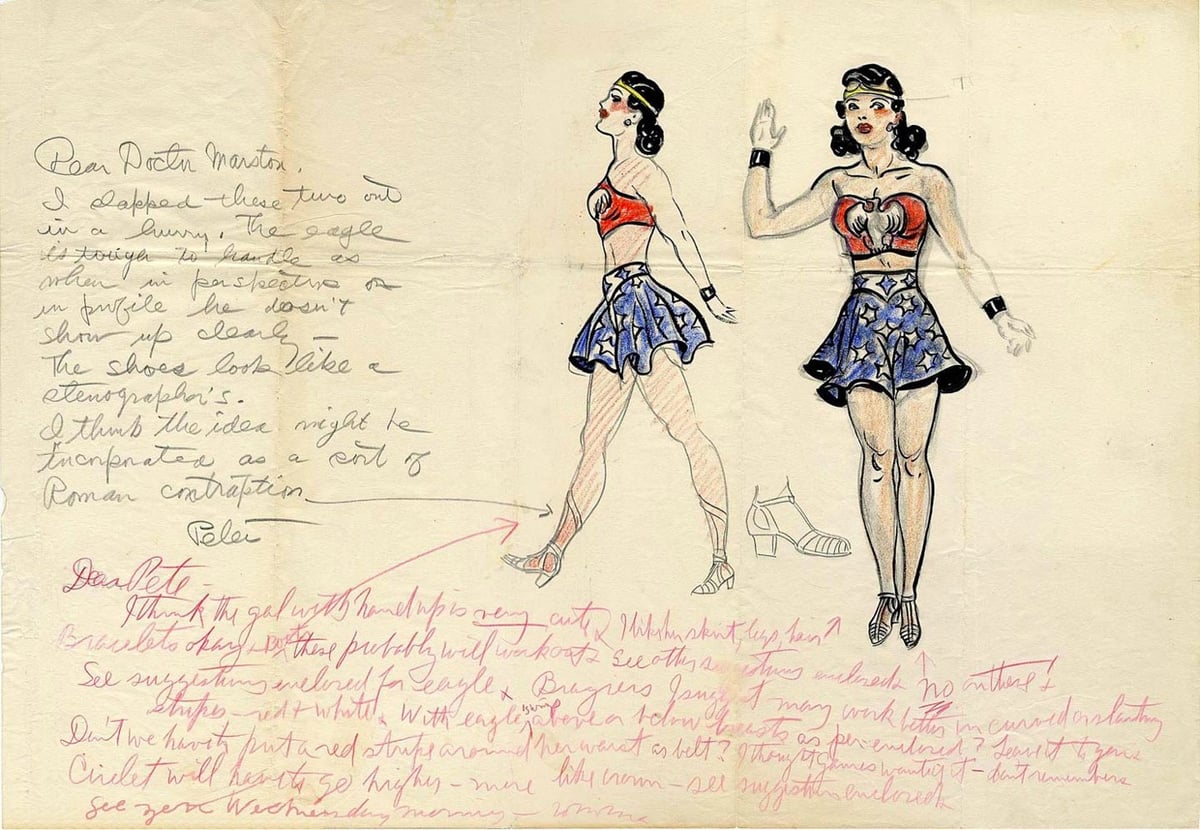 Dear Doctor Marston,
I slapped these two out
in a hurry. The eagle
is tough to handle as
when in perspective or
in profile he doesn't
show up clearly —
The shoes look like a
stenographer's.
I think the idea might be
incorporated as a sort of
Roman contraption
Peter
Dear Pete —
I think the gal with hand up is very cute. I like her skirt, legs, hair
Bracelets okay + boots these probably will work out. See other suggestions enclosed. No on these +
See suggestions enclosed for eagle + I suggest may work better in curved or slanting
stripes — red + white. With eagle's wings above or below breasts as per enclosed? Leave it to you.
Don't we have to put a red stripe around her waist as belt? I thought Gaines wanted it — don't remember.
Circlet will have to go higher — more like crown — see suggestions enclosed.
See you Wednesday morning —